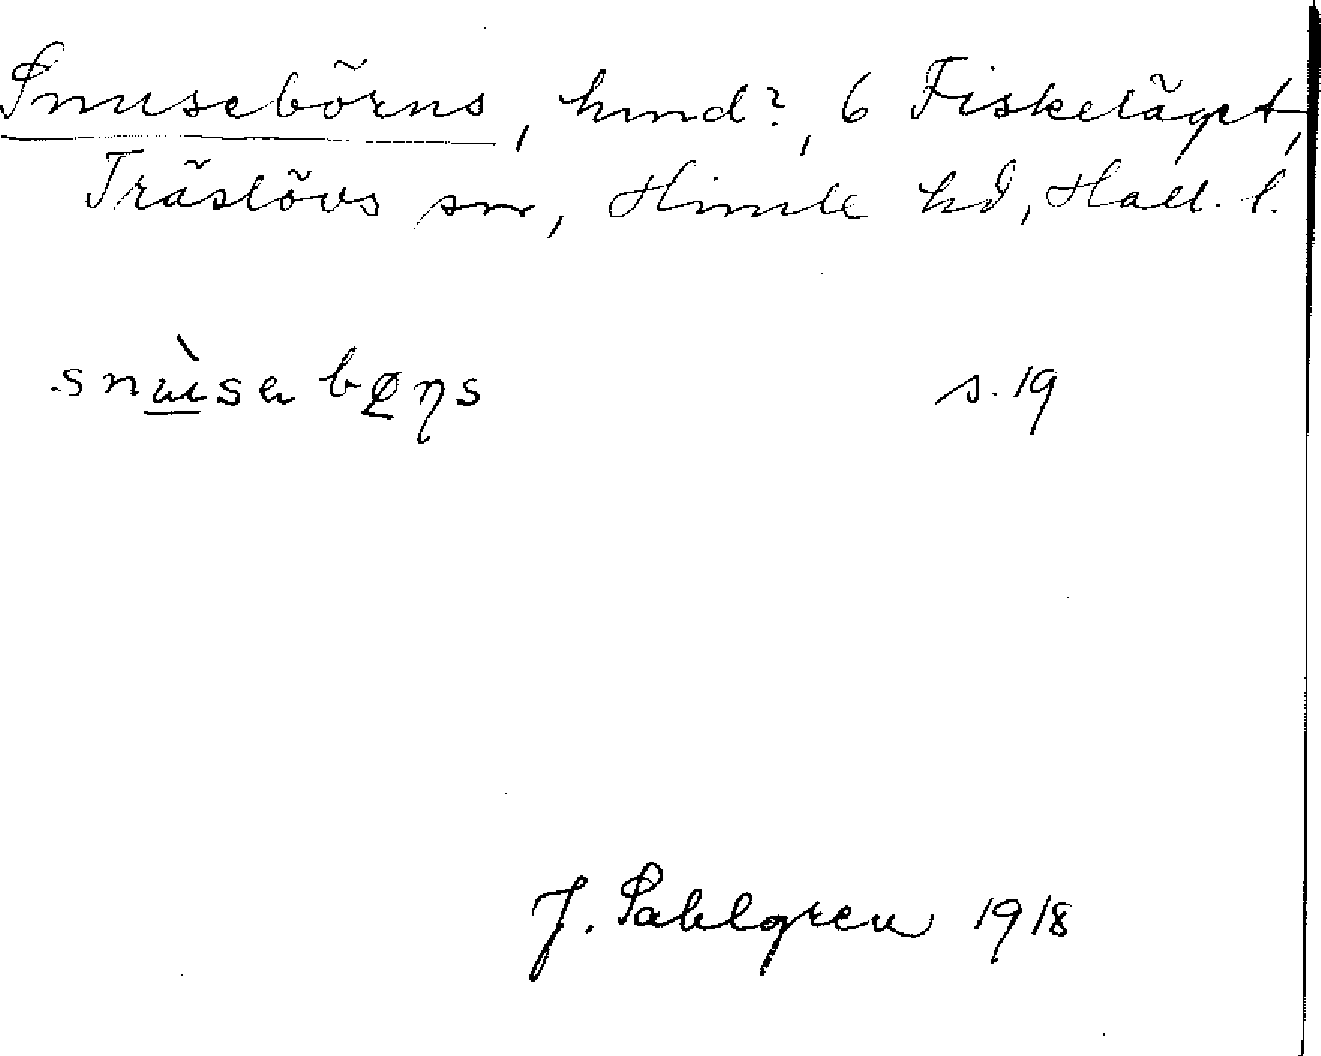 Snusebörns, hmd?, 6 Fiskeläget,
Träslövs sn, Himle hd, Hall. l.
s. 19
J. Sahlgren 1918